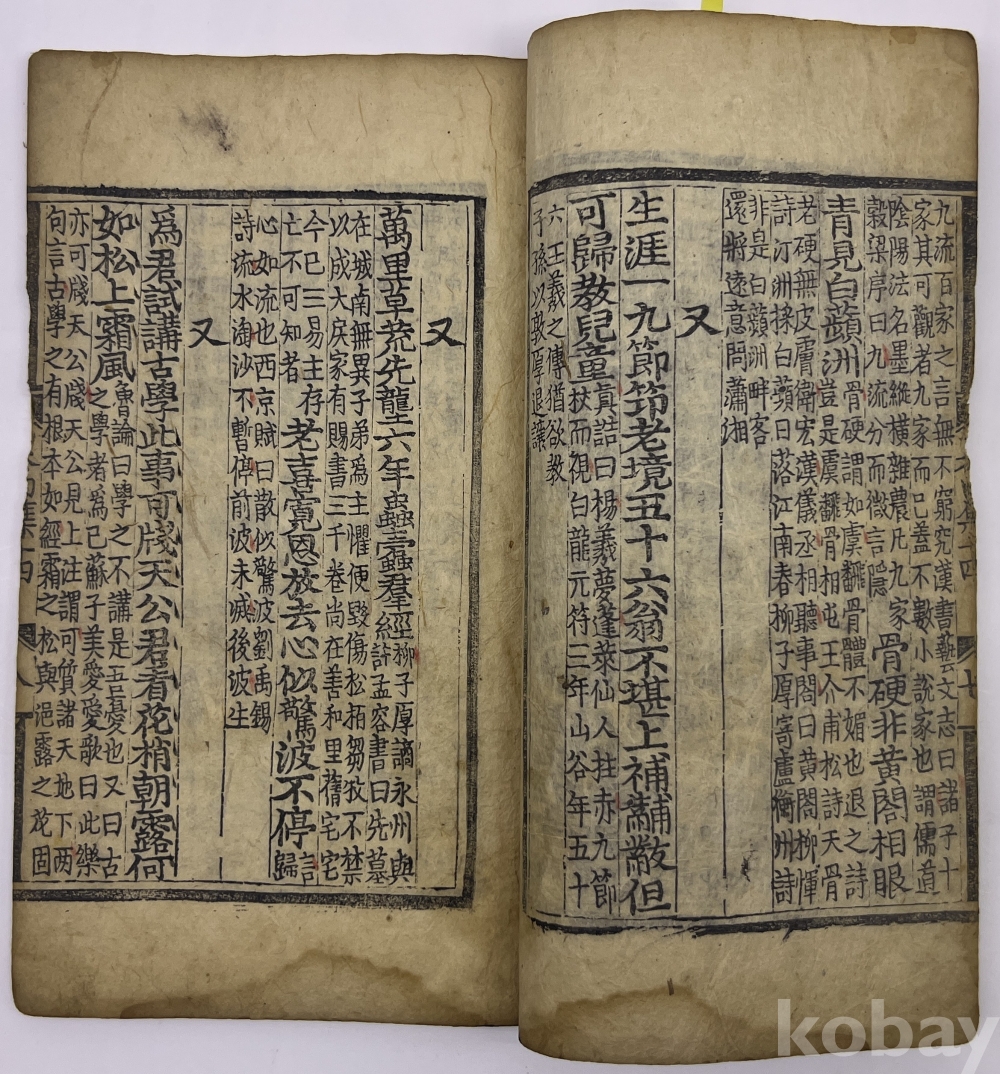 九流百家之言無不窮究漢書藝文志曰諸子十
家其可觀者九家而已蓋不數小說家也謂儒道
陰陽法名墨縱橫雜農凡九家
穀梁序曰九流分而微言隱
骨硬非黃閣相眼
青見白蘋洲
骨硬謂如虞翻骨體不媚也退之詩
豈是虞翻骨相屯王介甫松詩天骨
老硬無皮膚衛宏漢儀丞相聽事閣曰黃閣柳惲
詩汀洲採白蘋日落江南春柳子厚寄盧衡州詩
非是白蘋洲畔客
還將遠意問瀟湘
又
生涯一九節笻老境五十六翁不堪上補黼黻但
可歸教兒童
真誥曰楊羲夢蓬萊仙人拄赤九節
杖而視白龍元符三年山谷年五十
六王羲之傳猶欲教
子孫以敦厚退讓
又
萬里草荒先壟六年蟲蠹羣經
柳子厚謫永州與
許孟容書曰先墓
在城南無異子弟爲主懼便毀傷松栢芻牧不禁
以成大戾家有賜書三千卷尚在善和里舊宅宅
今已三易主存
亡不可知者
老喜寬恩放去心似驚波不停
言
歸
心如流也西京賦曰散似驚波劉禹錫
詩流水淘沙不暫停前波未滅後波生
又
爲君試講古學此事可牋天公君看花梢朝露何
如松上霜風
魯論曰學之不講是吾憂也又曰古
之學者爲己蘇子美愛愛歌曰此樂
亦可牋天公牋天公見上注謂可質諸天地下兩
句言古學之有根本如經霜之松與浥露之花固
kobay